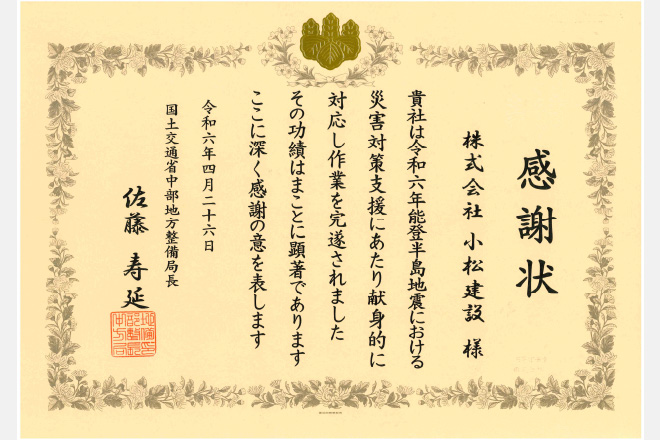 感謝状
株式会社 小松建設 様
貴社は令和六年能登半島地震における
災害対策支援にあたり献身的に
対応し作業を完遂されました
その功績はまことに顕著であります
ここに深く感謝の意を表します
令和六年四月二十六日
国土交通省中部地方整備局長
佐藤 寿延